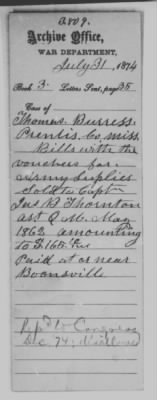 2009.
Archive Office,
WAR DEPARTMENT,
July 31, 1874
Book 3. Letters Sent, page 35
Case of
Thomas. Burress.
Prentis. Co. miss.
Bills with the
vouchers for.
Army Supplies
Sold to Capt
Jas B Thornton
asst Q. M. May
1862 amounting
to $165.
Paid at or near
Boonsville
Rep'd to Congress
Dec. 74: